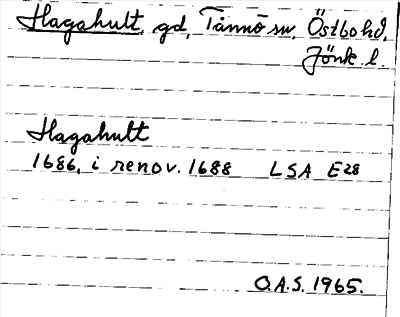 Hagahult, gd, Tånnö sn, Östbo hd,
Jönk. l.
Hagahult
1686, i renov. 1688 LSA E28
O.A.S. 1965.